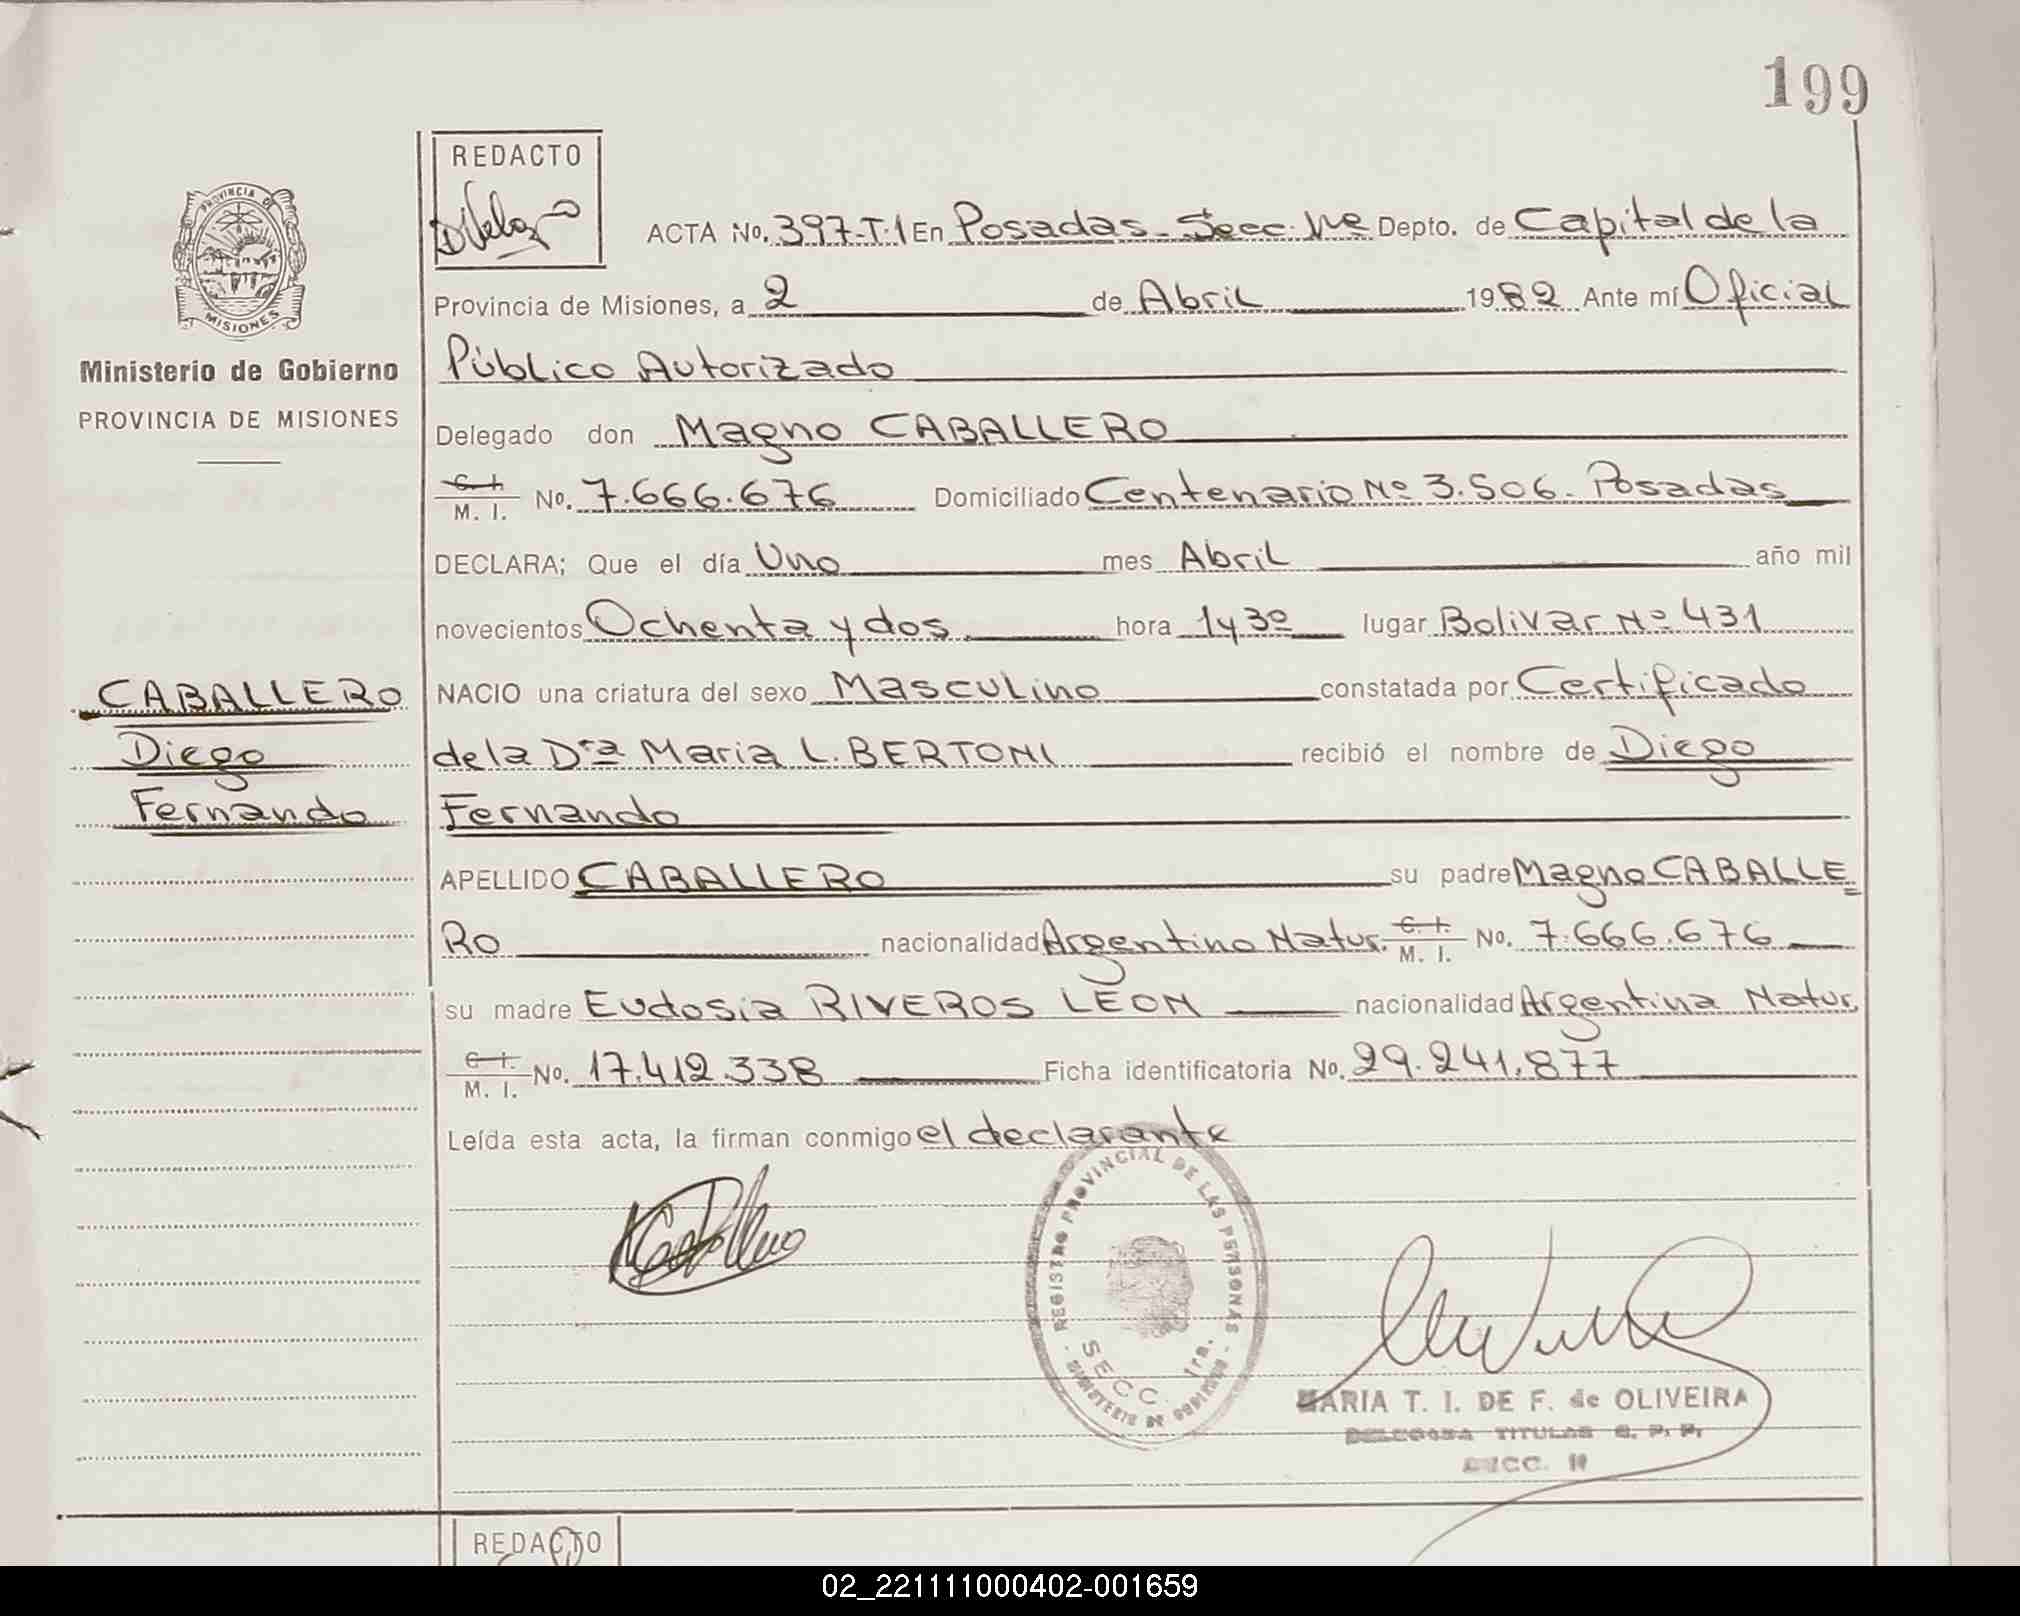 199
REDACTO
ACTA No. 397-T-1 En Posadas - Secc. 1ra Depto. de Capital de la
Provincia de Misiones, a 2 de Abril 1982 Ante mí Oficial
Público Autorizado
Delegado don Magno CABALLERO
C. I. M. I. No. 7.666.676 Domiciliado Centenario Nº 3.506. Posadas
DECLARA; Que el día Uno mes Abril año mil
novecientos Ochenta y dos hora 1y30 lugar Bolivar Nº 431
NACIO una criatura del sexo Masculino constatada por Certificado
de la Dra Maria L. BERTONI recibió el nombre de Diego
Fernando
APELLIDO CABALLERO su padre Magno CABALLE=
RO nacionalidad Argentino Natur. C. I. M. I. No. 7.666.676
su madre Eudosia RIVEROS LEON nacionalidad Argentina Natur.
C. I. M. I. No. 17.412.338 Ficha identificatoria No. 29.241.877
Leída esta acta, la firman conmigo el declarante
PROVINCIA DE
MISIONES
Ministerio de Gobierno
PROVINCIA DE MISIONES
CABALLERO
Diego
Fernando
REGISTRO PROVINCIAL DE LAS PERSONAS
SECC. 1ra.
MINISTERIO DE GOBIERNO
MARIA T. I. DE F. de OLIVEIRA
DELEGADA TITULAR
SECC.
REDACTO
02_221111000402-001659